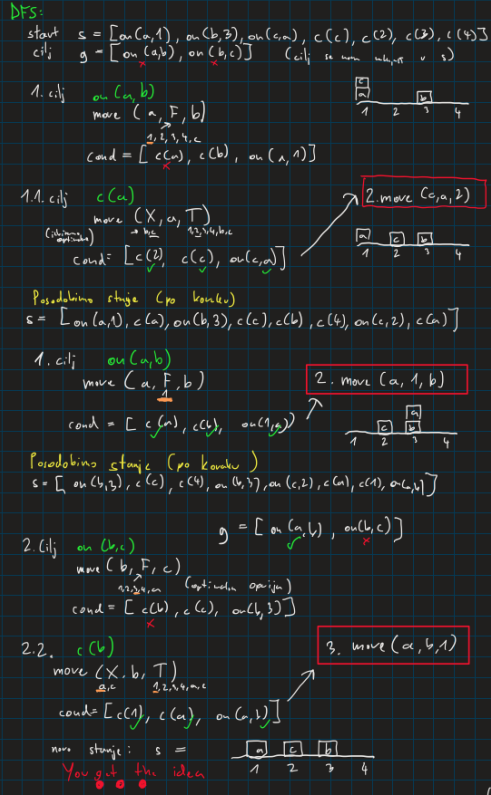 DFS:
start s = [on(a,1), on(b,3), on(c,a), c(c), c(2), c(3), c(4)]
cilj g = [on(a,b), on(b,c)] (cilj se nam v s)
1. cilj on(a,b)
move (a, F, b)
1,2,3,4,c
cond = [c(a), c(b), on(a,1)]
c
a b
1 2 3 4
1.1. cilj c(a)
move (X, a, T)
b,c 1,2,3,4,b,c
cond = [c(2), c(c), on(c,a)]
2. move (c,a,2)
a c b
1 2 3 4
Posodobimo stanje (po koraku)
s = [on(a,1), c(a), on(b,3), c(c), c(b), c(4), on(c,2), c(a)]
1. cilj on(a,b)
move (a, F, b)
1
cond = [c(a), c(b), on(1,a)]
2. move (a, 1, b)
a
c b
1 2 3 4
Posodobimo stanje (po koraku)
s = [on(b,3), c(c), c(4), on(b,3), on(c,2), c(a), c(1), on(a,b)]
g = [on(a,b), on(b,c)]
2. cilj on(b,c)
move (b, F, c)
1,2,3,4,a (optimalna opcija)
cond = [c(b), c(c), on(b,3)]
2.2. c(b)
move (X, b, T)
a,c 1,2,3,4,a,c
cond = [c(1), c(a), on(a,b)]
3. move (a,b,1)
novo stanje: s =
a c b
1 2 3 4
You get the idea